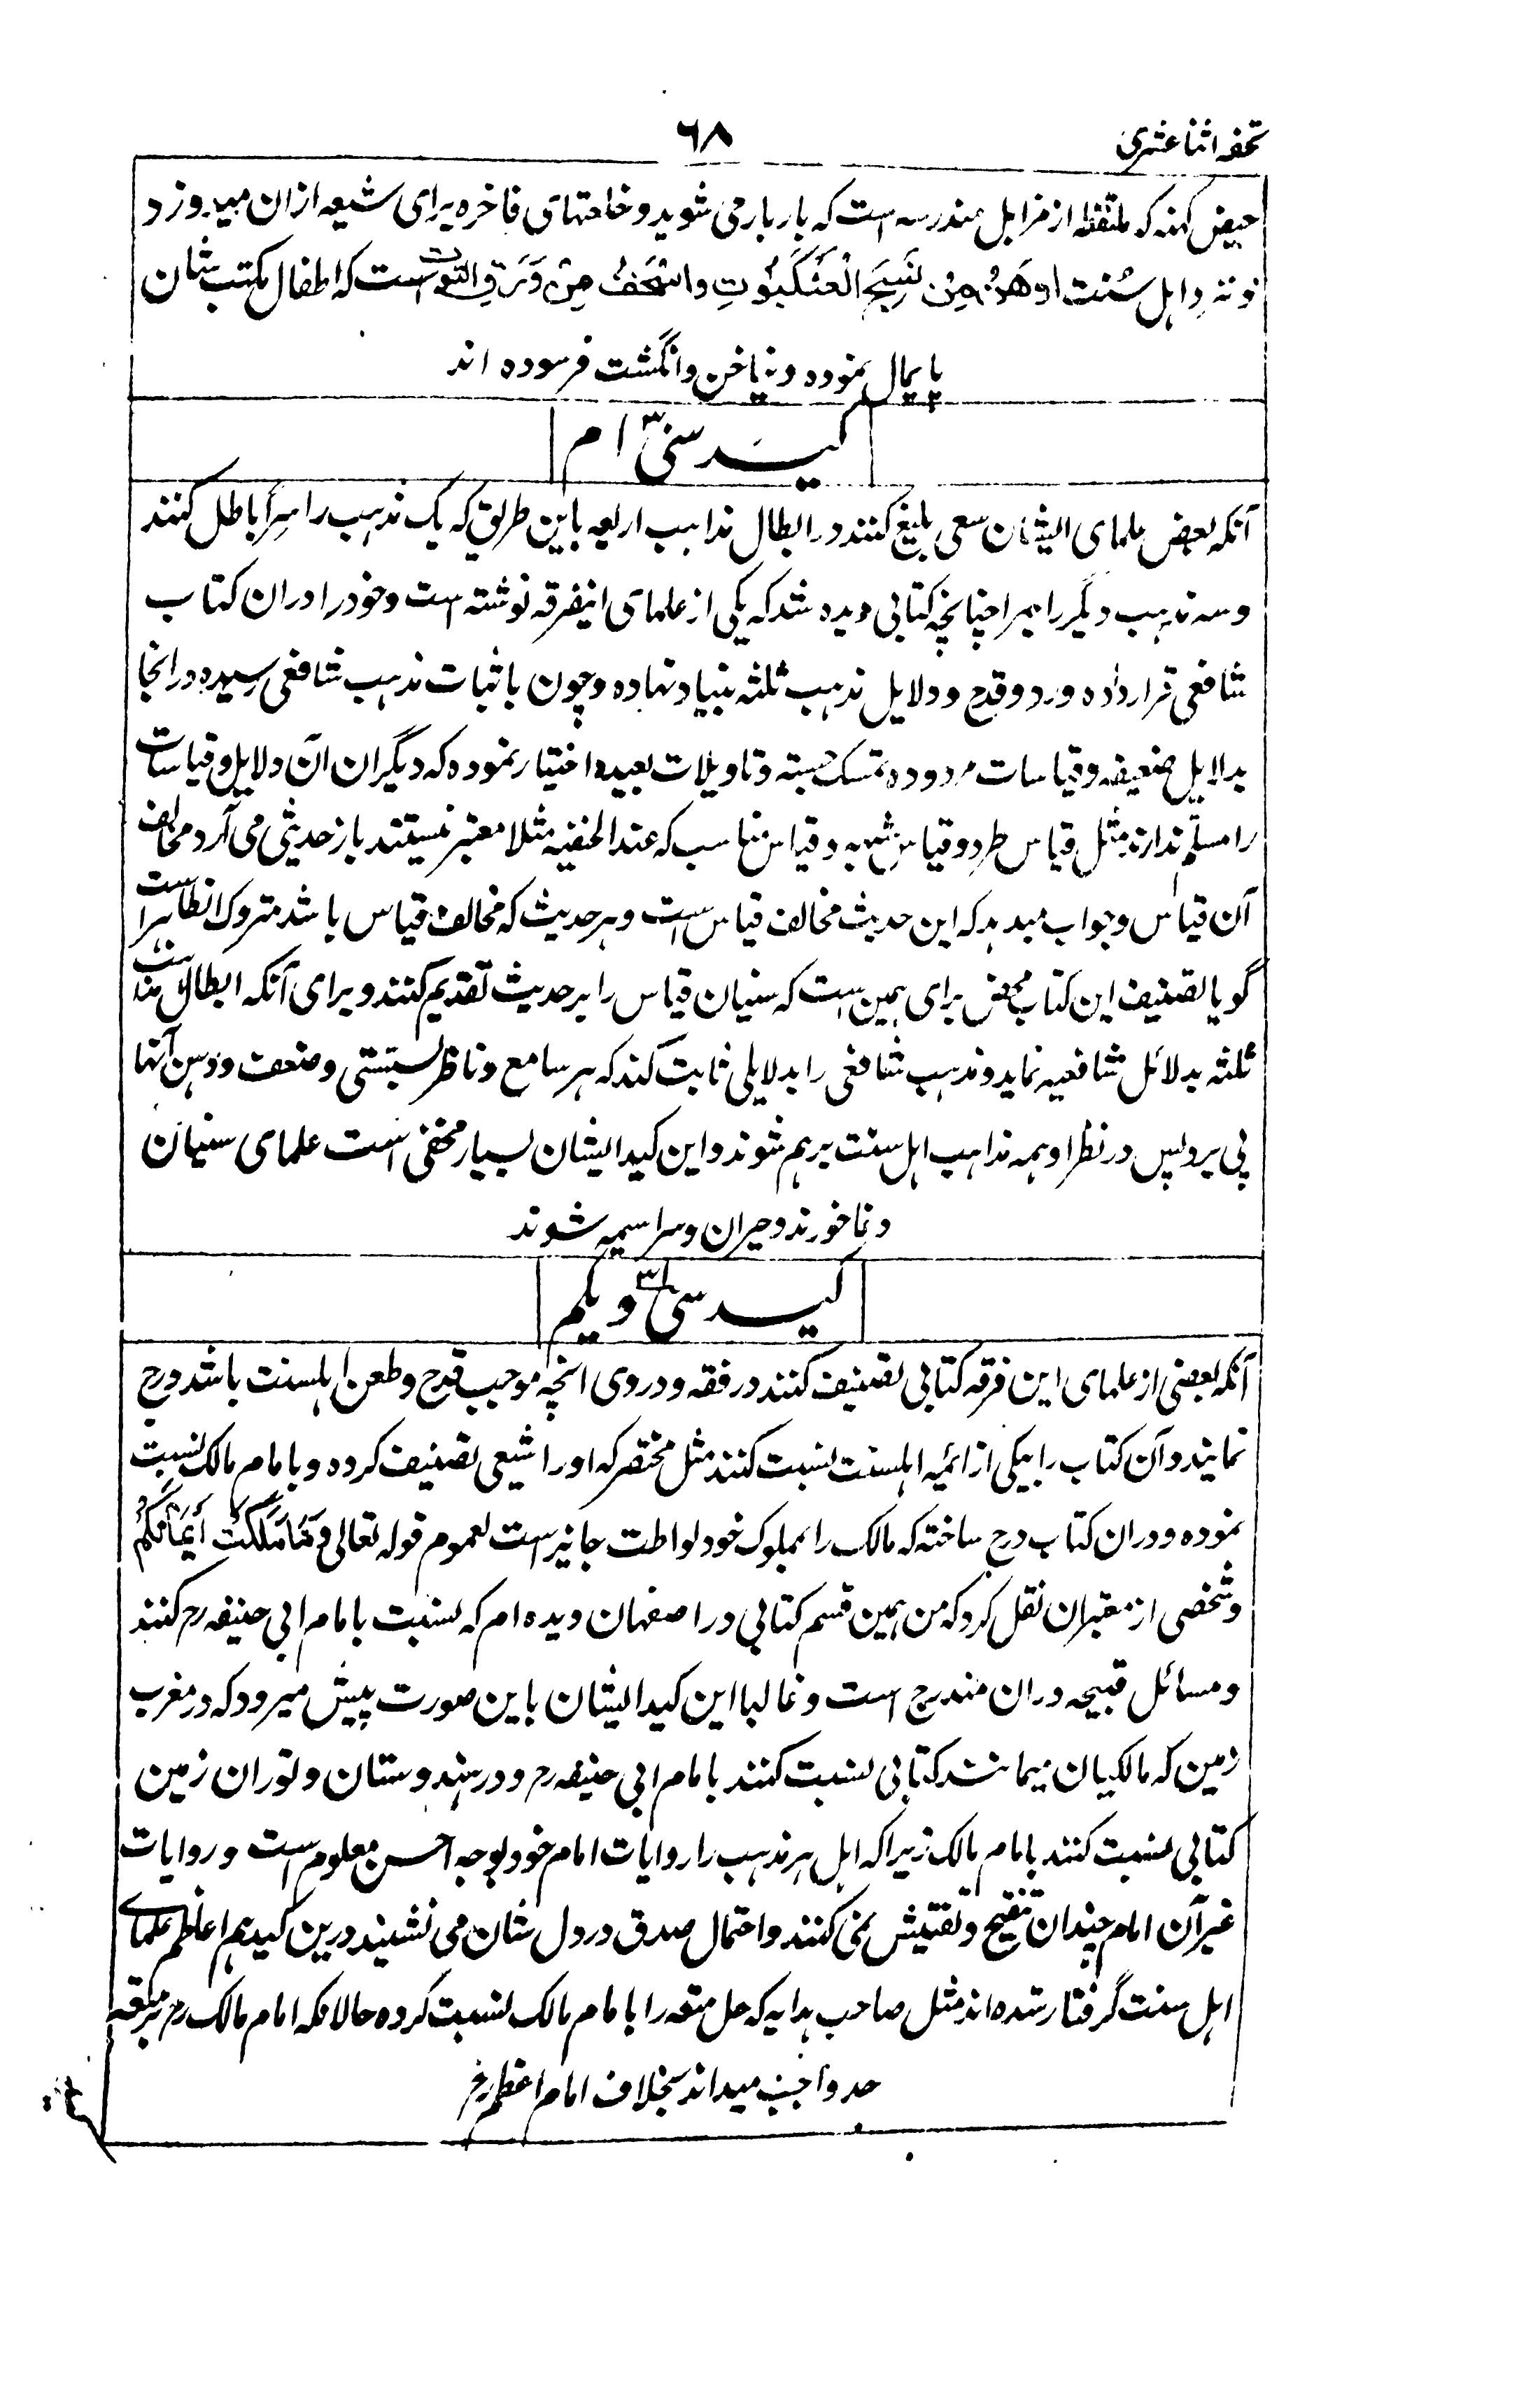 تحفه اثنا عشری
۶۸
حیض کهنه که ملتقطه از مزابل مندرسه است که بار بار می شوید و خلعتهای فاخره برای شیعه از ان میدوزد
و نزد اهل سنت اَوْهَنُ مِنْ نَسِیجِ الْعَنْکَبُوْتِ وَاَسْخَفُ مِنْ وَرَقِ التُّوْتِ است که اطفال مکتب شان
پایمال نموده و بناخن و انگشت فرسوده اند
کید سی ۳۰ ام
آنکه بعض علمای ایشان سعی بلیغ کنند در ابطال مذاهب اربعه باین طریق که یک مذهب را سراً باطل کنند
و سه مذهب دیگر را جهرا چنانچه کتابی دیده شد که یکی از علمای اینفرقه نوشته است و خود را دران کتاب
شافعی قرار داده و رد و قدح و دلایل مذهب ثلثه بنیاد نهاده و چون باثبات مذهب شافعی رسیده در انجا
بدلایل ضعیفه و قیاسات مردوده تمسک جسته و تاویلات بعیده اختیار نموده که دیگران آن دلایل و قیاسات
را مسلم ندارند مثل قیاس طرد و قیاس شبه و قیاس مناسب که عند الحنفیه مثلا معتبر نیستند باز حدیثی می آرد مخالف
آن قیاس و جواب میدهد که این حدیث مخالف قیاس است و هر حدیث که مخالف قیاس باشد متروک الظاهر است
گویا تصنیف این کتاب محض برای همین است که سنیان قیاس را بر حدیث تقدیم کنند و برای آنکه ابطال مذاهب
ثلثه بدلائل شافعیه نماید و مذهب شافعی را بدلایلی ثابت کند که هر سامع و ناظر بسستی و ضعف و وهن آنها
پی برد پس در نظر او همه مذاهب اهل سنت برهم شوند و این کید ایشان بسیار مخفی است علمای سنیان
دغا خورند و حیران و سراسیمه شوند
کید سی ۳۱ و یکم
آنکه بعضی از علمای این فرقه کتابی تصنیف کنند در فقه و در وی انچه موجب قدح و طعن اهلسنت باشد درج
نمایند و آن کتاب را بیکی از ائمه اهلسنت نسبت کنند مثل مختصر که او را شیعی تصنیف کرده و بامام مالک نسبت
نموده و دران کتاب درج ساخته که مالک را بملوک خود لواطت جائز است لعموم قوله تعالی وَمَا مَلَکَتْ أَیْمَانُکُمْ
و شخصی از معتبران نقل کرد که من همین قسم کتابی در اصفهان دیده ام که نسبت بامام ابی حنیفه رح کنند
و مسائل قبیحه دران مندرج است و غالبا این کید ایشان باین صورت پیش میرود که در مغرب
زمین که مالکیان میمانند کتابی نسبت کنند بامام ابی حنیفه رح و در هندوستان و توران زمین
کتابی نسبت کنند بامام مالک زیرا که اهل هر مذهب را روایات امام خود بوجه احسن معلوم است و روایات
غیر آن امام چندان تنقیح و تفتیش نمی کنند و احتمال صدق در دل شان می نشیند درین کید هم اعاظم علمای
اهل سنت گرفتار شده اند مثل صاحب هدایه که حل متعه را بامام مالک نسبت کرده حالانکه امام مالک رح بر متعه
حد واجب میداند بخلاف امام اعظم رح